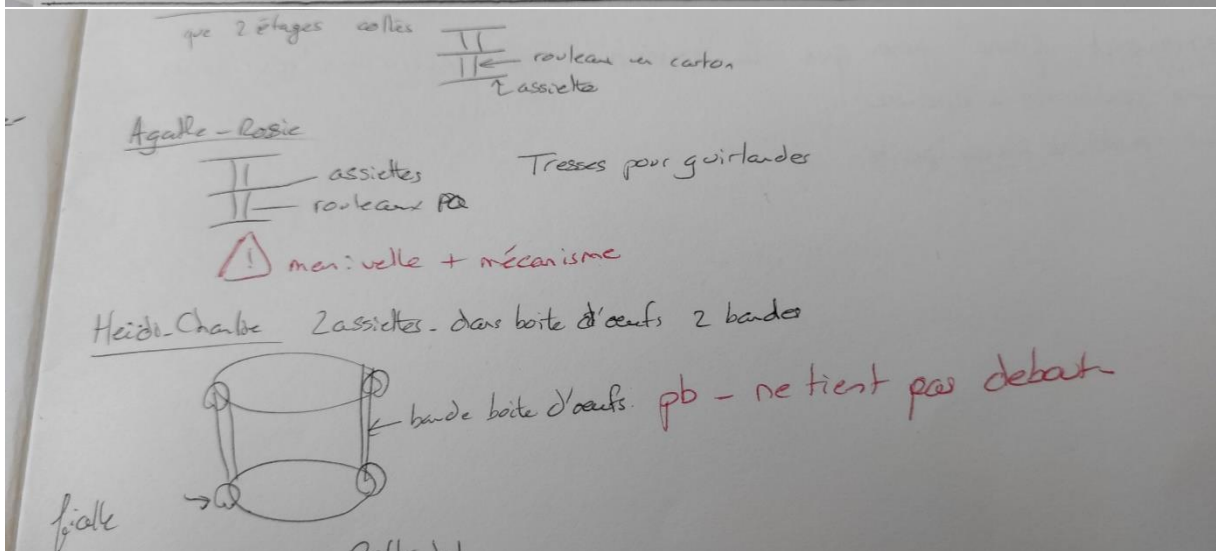 que 2 étages collés
rouleaux en carton
assiette
Agathe-Rosie
assiettes
Tresses pour guirlandes
rouleaux PQ
! manivelle + mécanisme
Heidi-Charlie 2 assiettes - dans boite d'oeufs 2 bandes
bande boite d'oeufs. pb - ne tient pas debout
ficelle